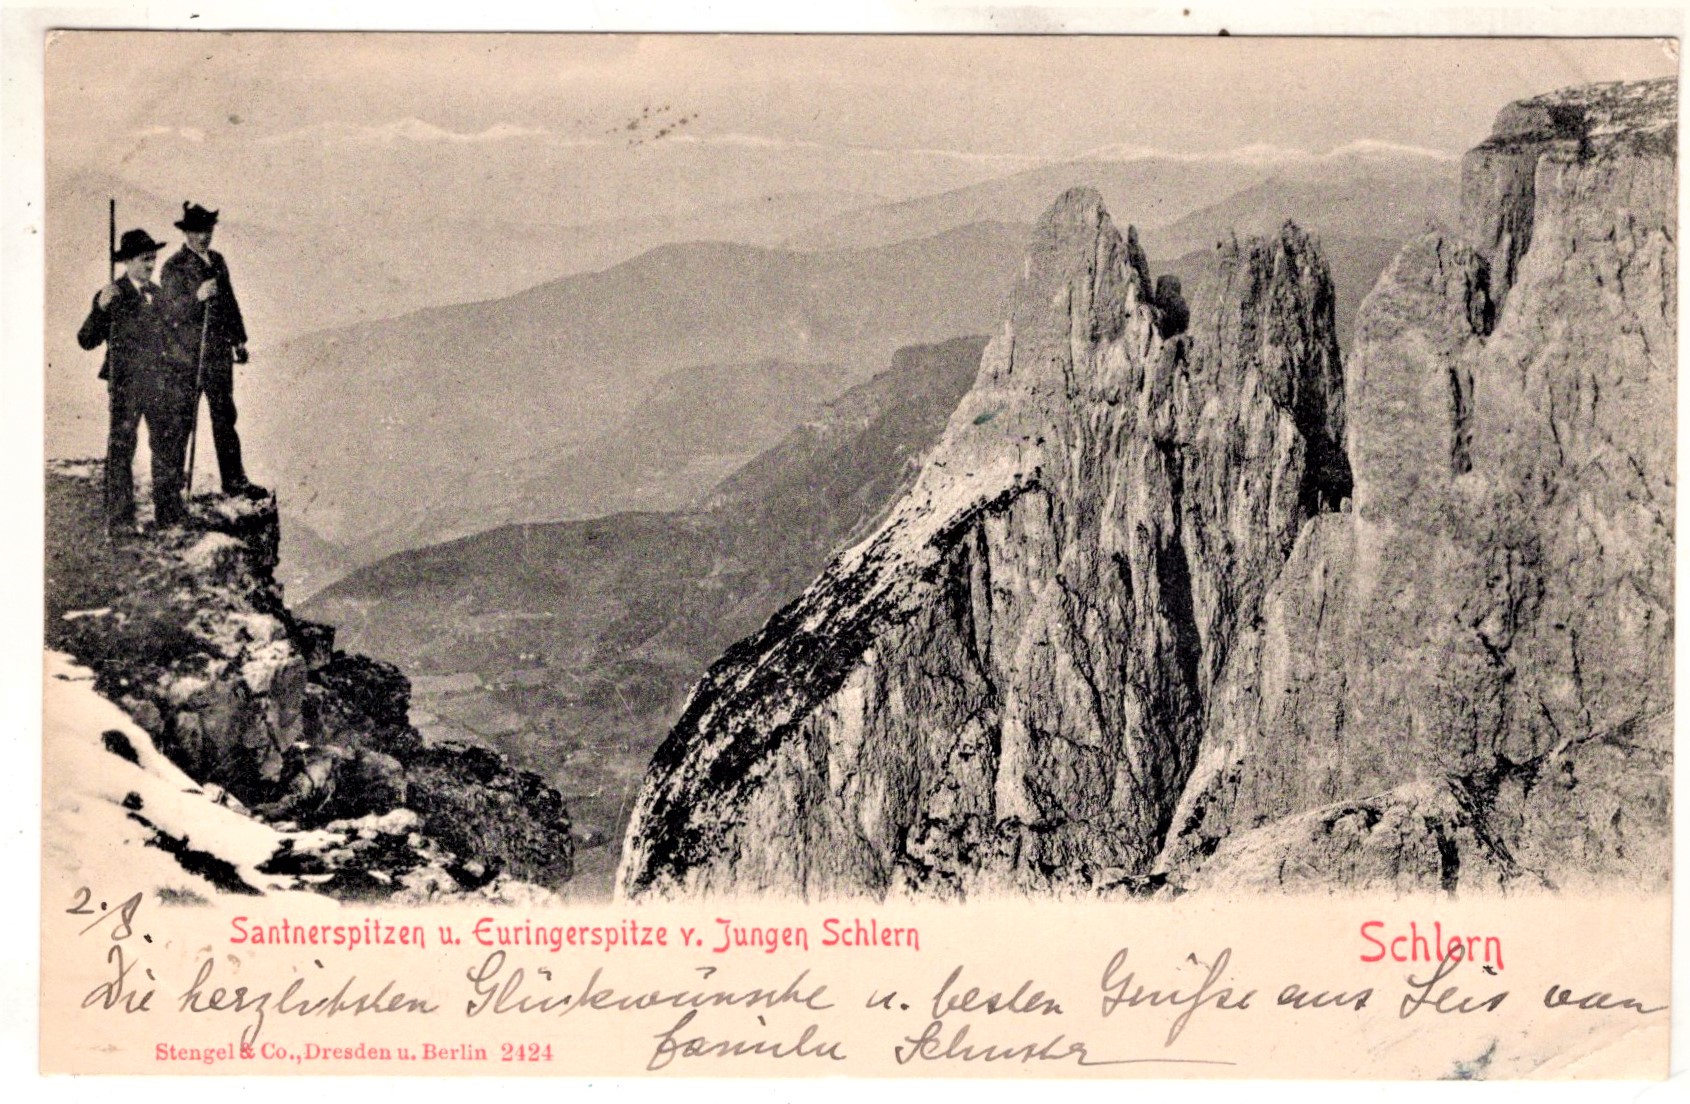 2./8.
Santnerspitzen u. Euringerspitze v. Jungen Schlern
Schlern
Die herzlichsten Glückwünsche u. besten Grüße aus Seis von
Familie Schuster
Stengel & Co., Dresden u. Berlin 2424